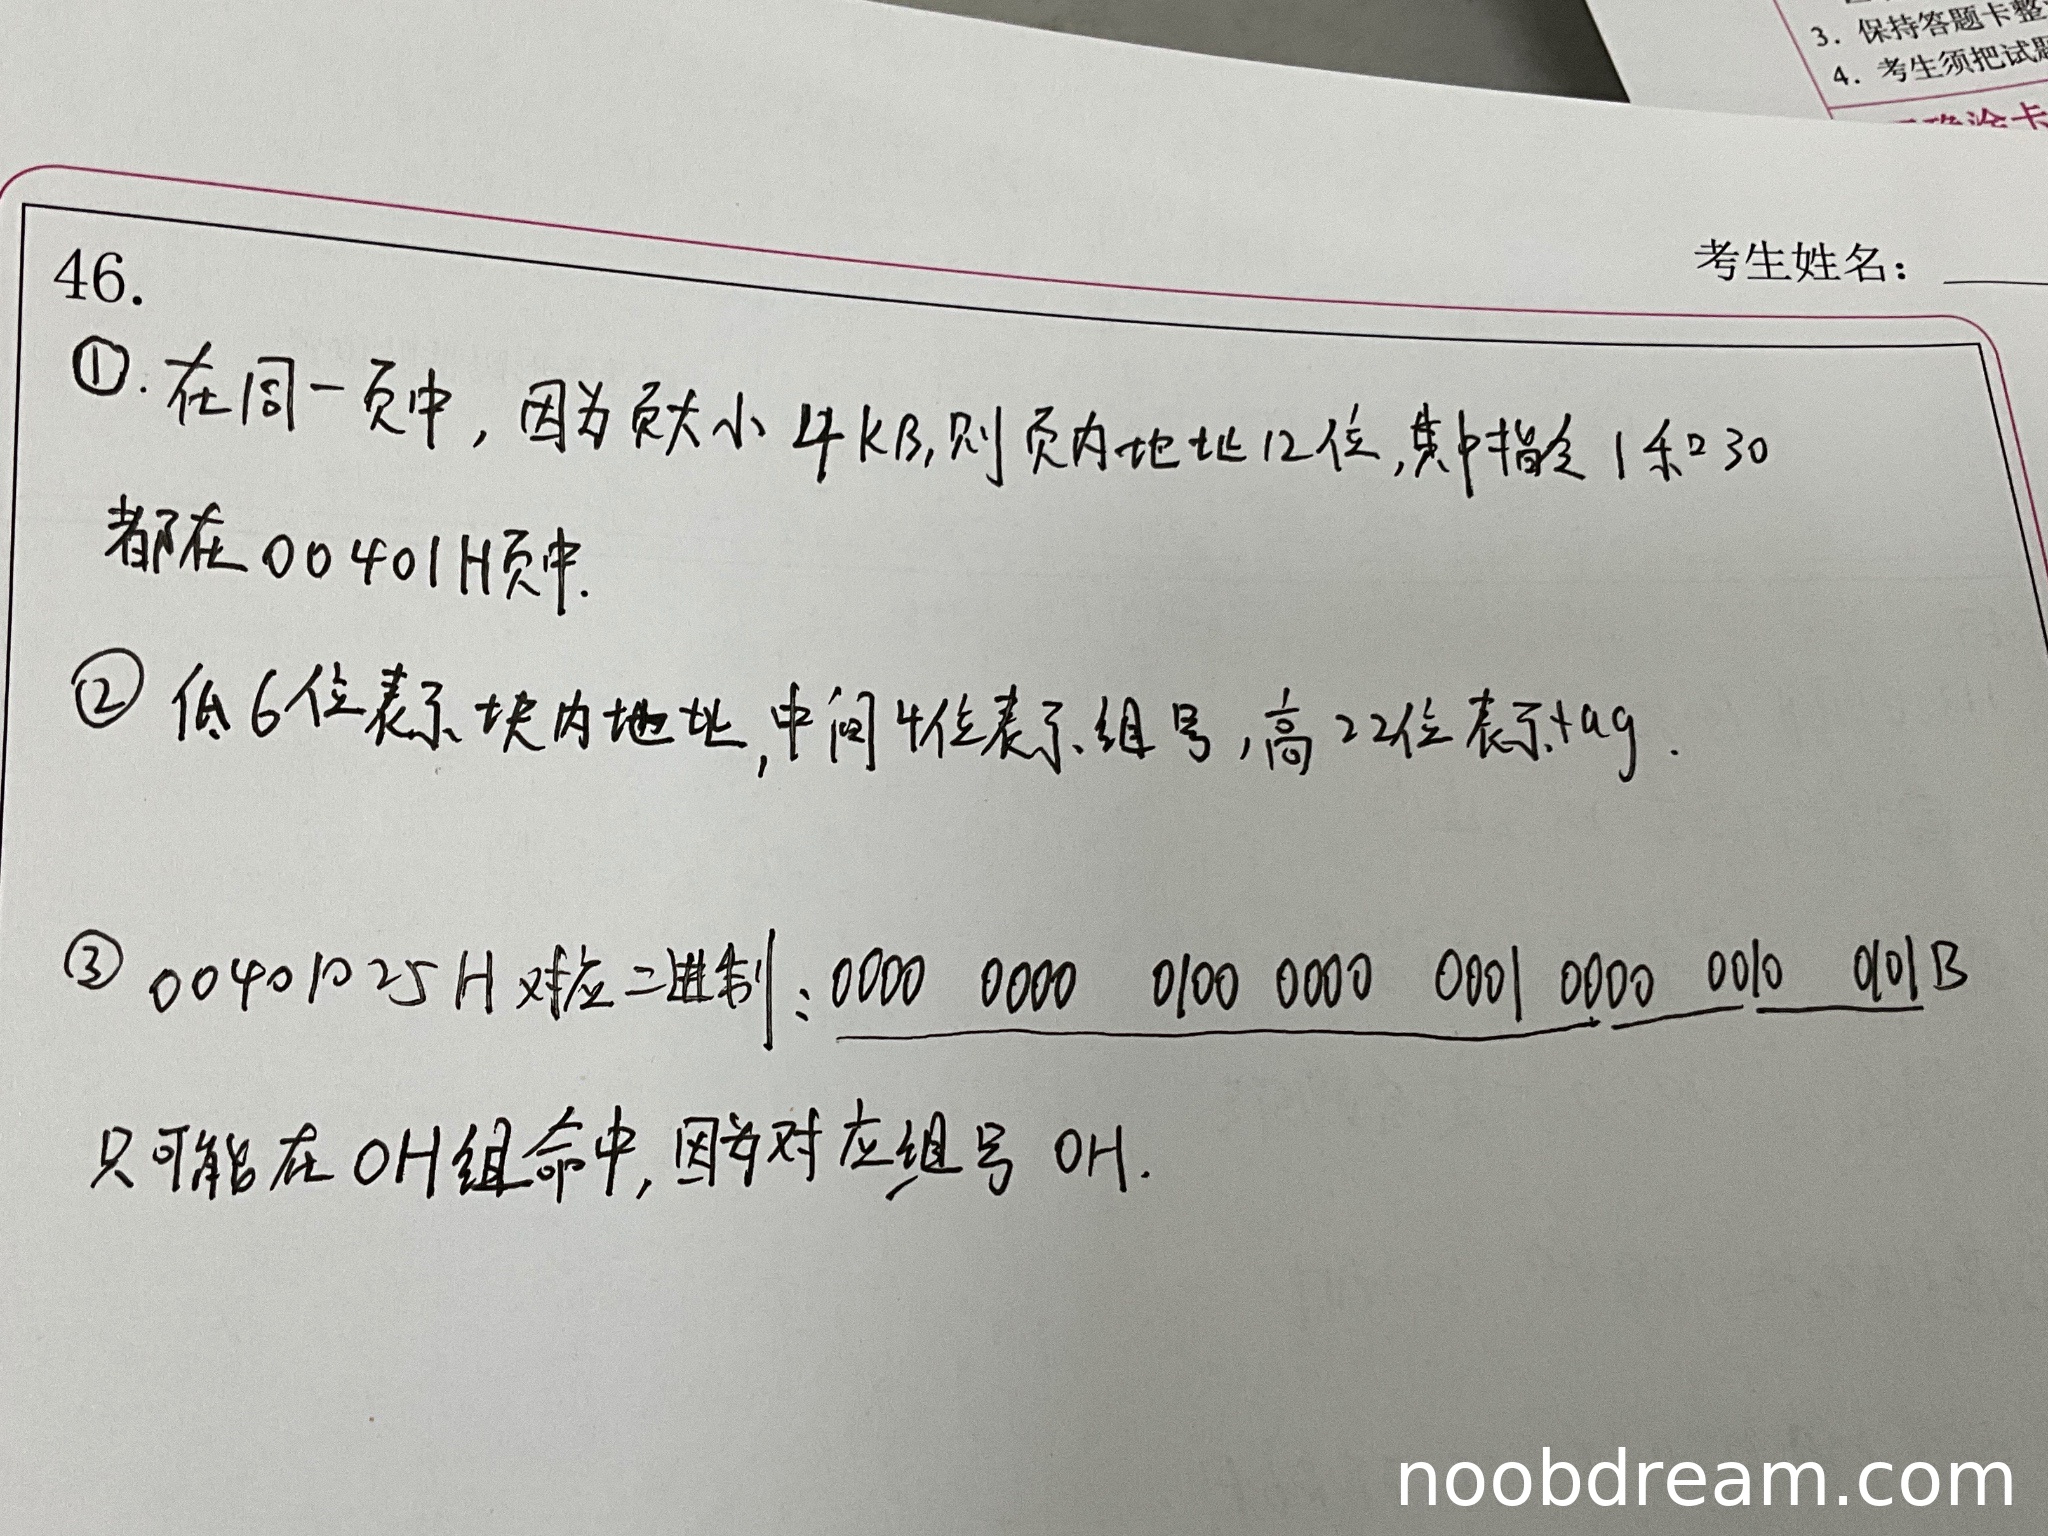 3. 保持答题卡整
4. 考生须把试题
考生姓名：
46.
①. 在同一页中, 因为页大小 4KB, 则页内地址12位, 其中指令 1 和 30
都在 00401H页中.
② 低6位表示块内地址, 中间4位表示组号, 高22位表示tag.
③ 00401025H 对应二进制: 0000 0000 0100 0000 0001 0000 0010 0101B
只可能在 0H组命中, 因为对应组号 0H.
noobdream.com